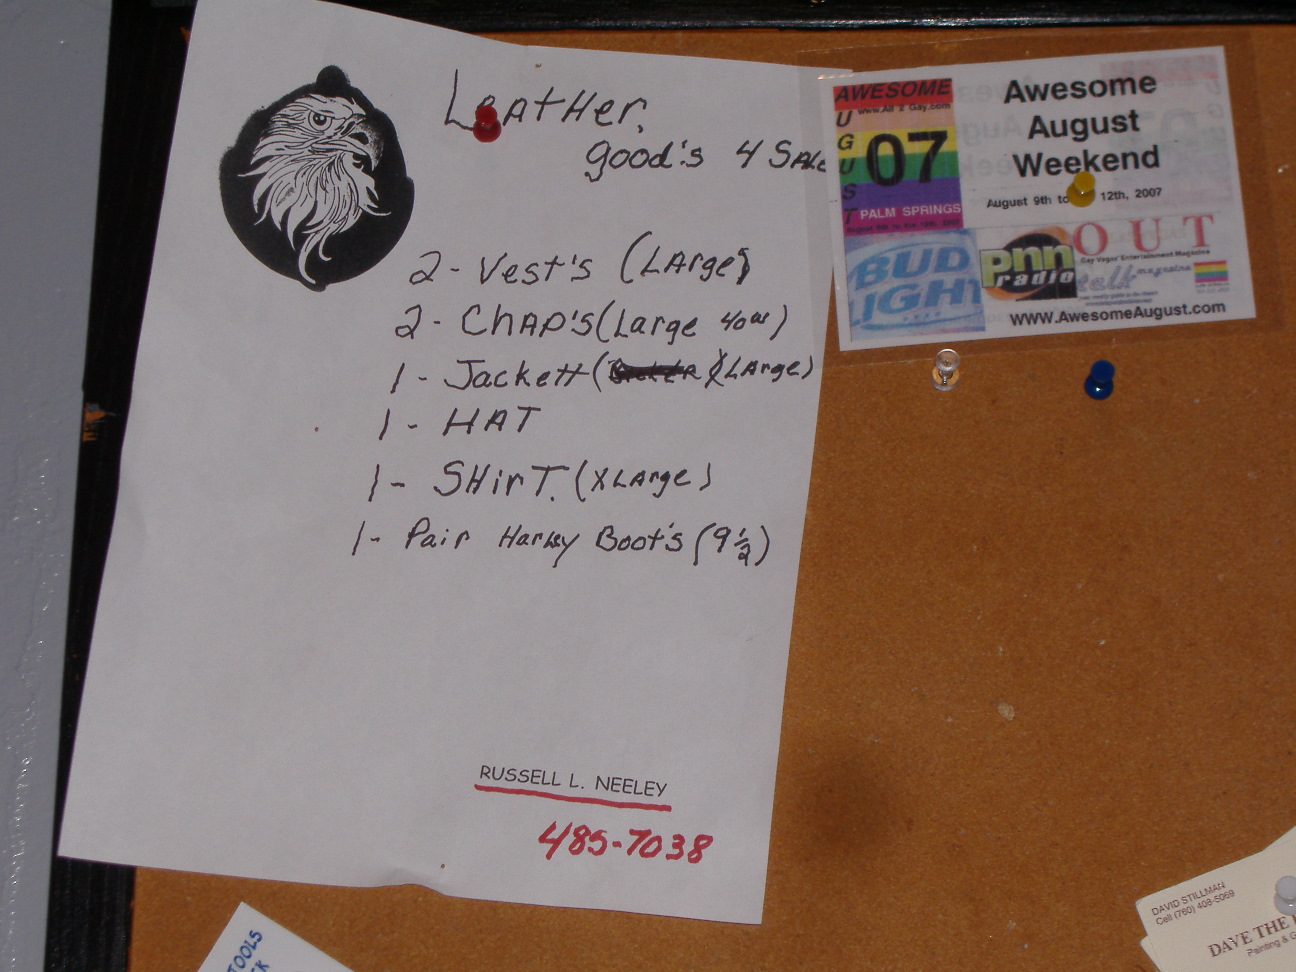 Leather,
good's 4 Sale
2 - Vest's (Large)
2 - Chap's (Large 40w)
1 - Jackett ( XLarge)
1 - HAT
1 - SHirT. (XLarge)
1 - Pair Harley Boot's (9 1/2)
RUSSELL L. NEELEY
485-7038
AWESOME
www.All 2 Gay.com
AUGUST
07
PALM SPRINGS
Awesome
August
Weekend
August 9th to 12th, 2007
BUD
LIGHT
pnn
radio
OUT
Gay Vegas' Entertainment Magazine
talk magazine
www.AwesomeAugust.com
DAVID STILLMAN
Cell (760) 408-5069
DAVE THE
Painting & G
TOOLS